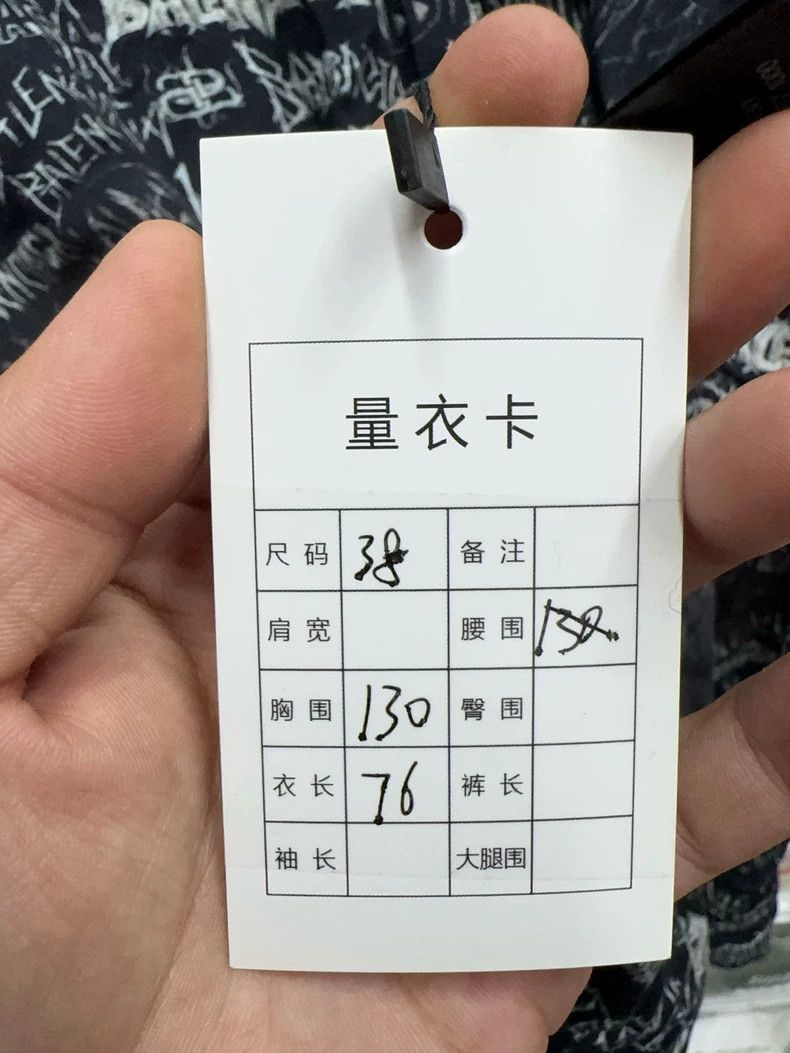 BALENCIAGA
量衣卡
尺码 38 备注
肩宽 腰围 130
胸围 130 臀围
衣长 76 裤长
袖长 大腿围